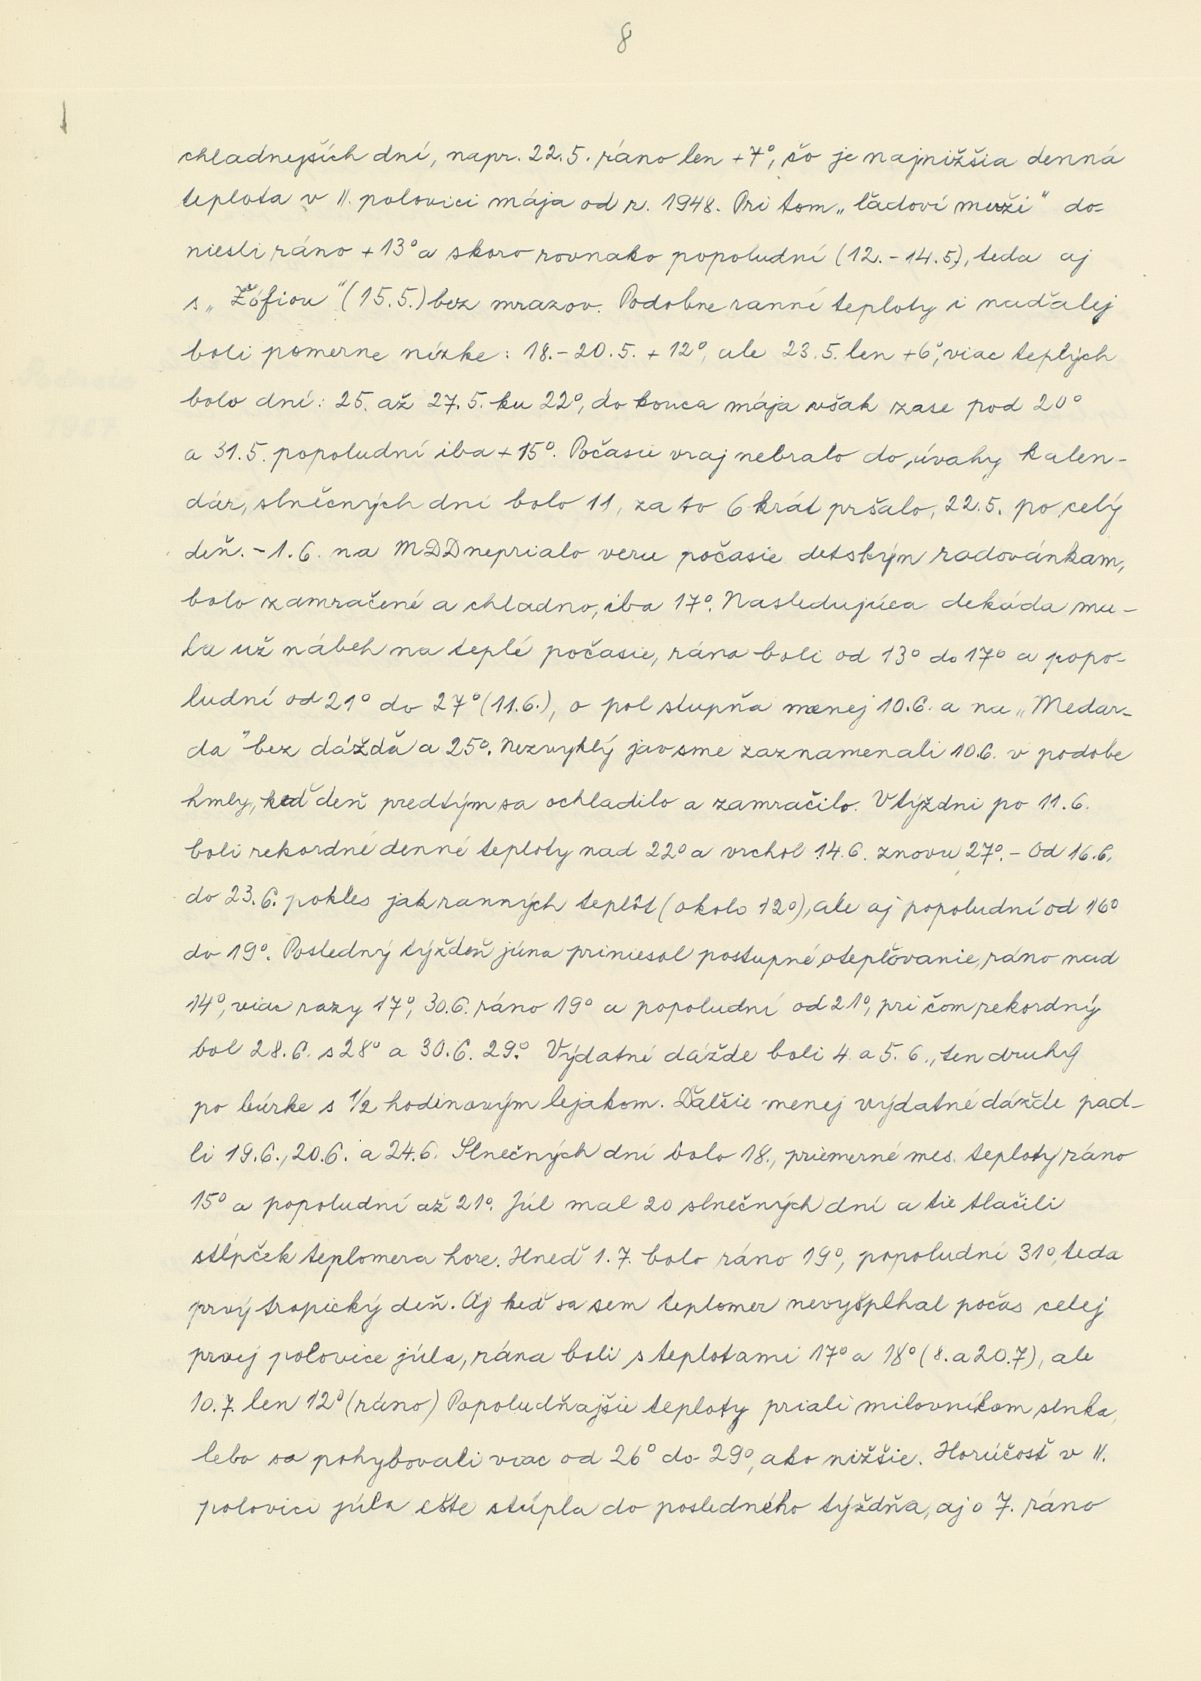 8
chladnejších dní, napr. 22.5. ráno len +7°, čo je najnižšia denná
teplota v II. polovici mája od r. 1948. Pri tom „ľadoví muži" do-
niesli ráno +13° a skoro rovnako popoludní (12.-14.5), teda aj
s „Žofiou" (15.5.) bez mrazov. Podobne ranné teploty i naďalej
boli pomerne nízke: 18.-20.5. +12°, ale 23.5. len +6°, viac teplých
bolo dní: 25. až 27.5. ku 22°, do konca mája však zase pod 20°
a 31.5. popoludní iba +15°. Počasie vraj nebralo do úvahy kalen-
dár, slnečných dní bolo 11, za to 6 krát pršalo, 22.5. po celý
deň. - 1.6. na MDD neprialo veru počasie detským radovánkam,
bolo zamračené a chladno, iba 17°. Nasledujúca dekáda ma-
la už nábeh na teplé počasie, rána boli od 13° do 17° a popo-
ludní od 21° do 27° (11.6.), o pol stupňa menej 10.6. a na „Medar-
da" bez dážďa a 25°. Nezvyklý jav sme zaznamenali 10.6. v podobe
hmly, keď deň predtým sa ochladilo a zamračilo. V týždni po 11.6.
boli rekordné denné teploty nad 22° a vrchol 14.6. znovu 27°. - Od 16.6.
do 23.6. pokles jak ranných teplôt (okolo 12°), ale aj popoludní od 16°
do 19°. Posledný týždeň júna priniesol postupné otepľovanie, ráno nad
14°, viac razy 17°, 30.6. ráno 19° a popoludní od 21°, pri čom rekordný
bol 28.6. s 28° a 30.6. 29°. Výdatné dážde boli 4. a 5.6., ten druhý
po búrke s 1/2 hodinovým lejakom. Ďalšie menej výdatné dážde pad-
li 19.6., 20.6. a 24.6. Slnečných dní bolo 18., priemerné mes. teploty ráno
15° a popoludní až 21°. Júl mal 20 slnečných dní a tie tlačili
stĺpček teplomera hore. Hneď 1.7. bolo ráno 19°, popoludní 31°, teda
prvý tropický deň. Aj keď sa sem teplomer nevyšplhal počas celej
prvej polovice júla, rána boli s teplotami 17° a 18° (8. a 20.7), ale
10.7. len 12° (ráno) Popoludňajšie teploty priali milovníkom slnka,
lebo sa pohybovali viac od 26° do 29°, ako nižšie. Horúčosť v II.
polovici júla ešte stúpla do posledného týždňa, aj o 7. ráno